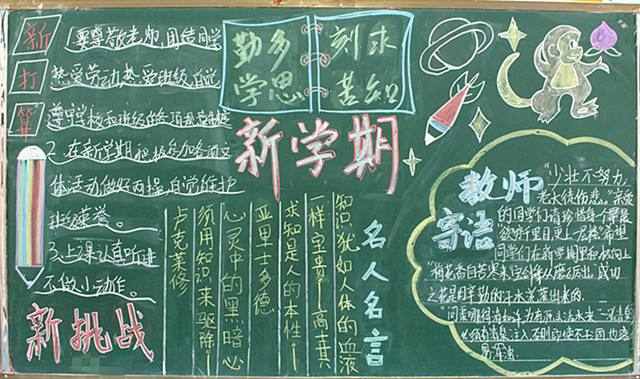 新
打
算
1要尊敬老师,团结同学
热爱劳动热爱班级,自觉
2.在新学期积极参加各项文
体活动做好两操,自觉维护
班级荣誉。
3.上课认真听讲
不做小动作。
新挑战
勤多
学思
刻求
苦知
新学期
名人名言
知识犹如人体的血液
一样宝贵—高士其
求知是人的本性—
亚里士多德
心灵中的黑暗必
须用知识来驱除—
卢克莱修
教师
寄语
"少壮不努力,
老大徒伤悲。"亲爱
的同学们请珍惜
"欲穷千里目更上一层楼"希望
同学们在新学期里
"梅花香自苦寒来宝剑锋从磨砺出。成功
之花是用辛勤的汗水浇灌出来的.